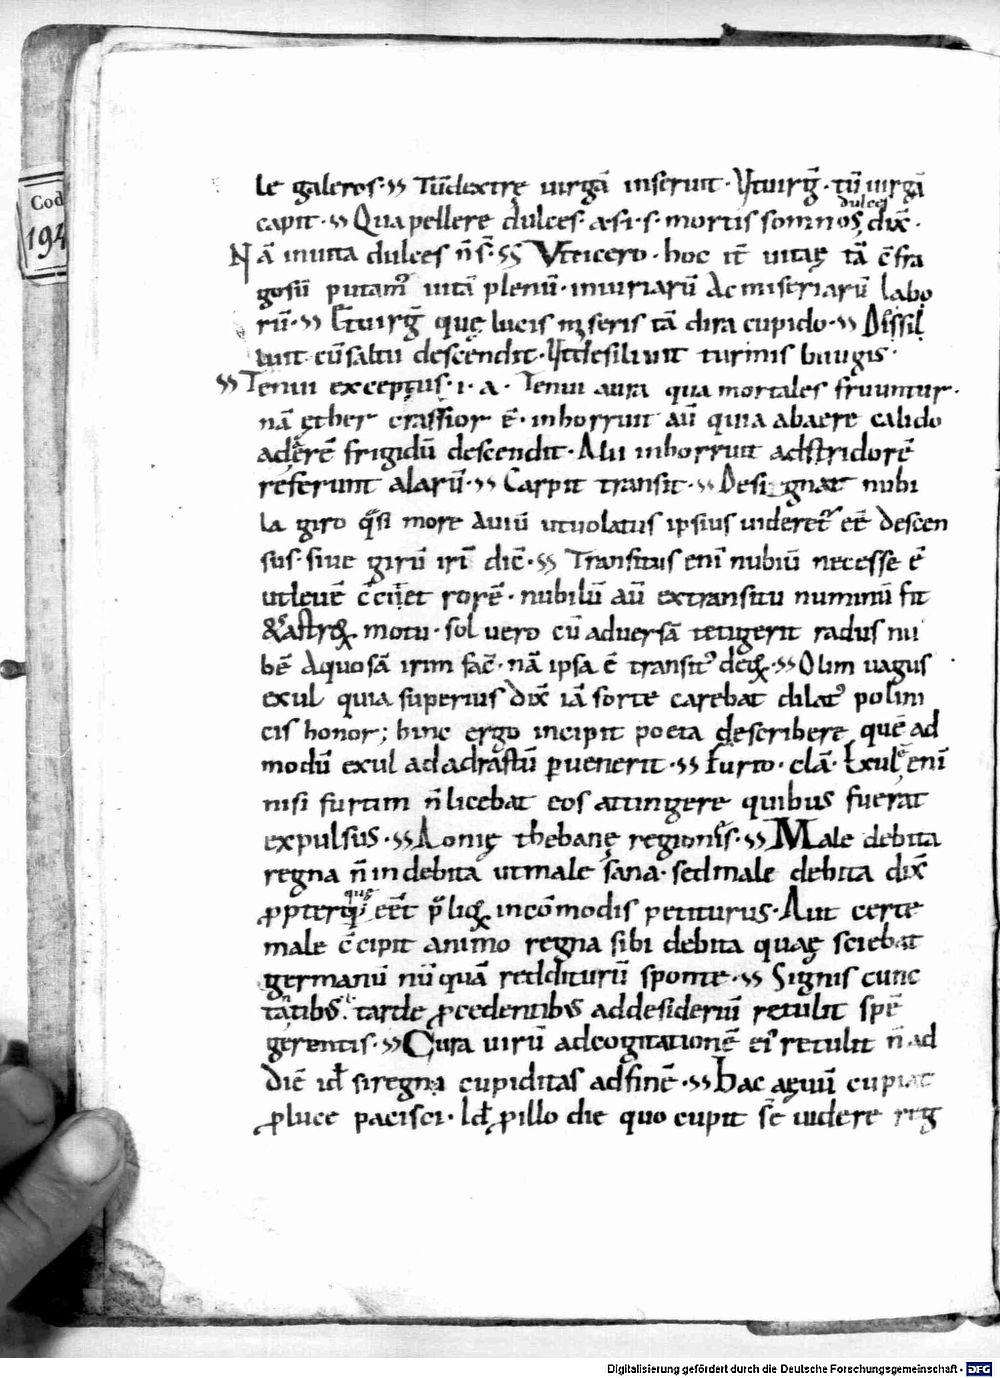 Cod
194
le galeros·›› Tū dextrę uirgā inseruit· Vt uirg̅· tū uirgā
dulces
capit·›› Qua pellere dulces· a·s·i·s· mortis somnos, dix̄·
Nā inuita dulces n̄ s̄·›› Vt cicero· hoc it̄ uitę tā ē fra
gosū putamꝰ uitā plenū· iniuriarū Ac miseriarū labo
rū·›› Et uirg̅ quę lucis miseris tā dira cupido·›› Dissil
uit cū saltu descendit· Vt desiliunt turmis biiugis·
›› Tenui exceptus· i· a· Tenui aura qua mortales fruuntur·
nā ęther crassior ē· inhorruit aū quia ab aere calido
ad aerē frigidū descendit· Alii inhorruit ad stridorē
referunt alarū·›› Carpit transit·›› Designat nubi
la giro q̄si more Auiū ut uolatus ipsius uideret̄ eē descen
sus· siue girū irī dic̄·›› Transitus enī nubiū necesse ē
rorē· nubilū aū ex transitu fit
& astroꝝ motu· sol uero cū aduersā tetigerit radiis nu
bē Aquosā irim fac̄· nā ipsa ē transitꝰ deꝝ·›› Olim uagus
exul quia superius dix̄ iā sorte carebat dilatꝰ polini
cis honor; hinc ergo incipit poeta describere, quē ad
modū exul ad adrastū ꝑuenerit·›› Furto· clā· Exulē enī
nisi furtim n̄ licebat eos attingere quibus fuerat
expulsus·›› Aonię thebanę regionis·›› Male debita
regna n̄ indebita ut male sana· sed male debita dix̄
que
in cōmodis petiturus· Aut certe
male cipit animo regna sibi debita quae sciebat
germanū nū quā redditurū sponte·›› Signis cunc
tātibꝰ· tarde ꝓcedentibꝰ ad desideriū retulit spē
gerentis·›› Cura uirū ad cogitationē eiꝰ retulit n̄ ad
diē id̄ si regna cupiditas ad finē·›› Hac aęuū cupiat
ꝓ luce pacisci· Id ꝓ illo die quo cupit sē uidere reg
Digitalisierung gefördert durch die Deutsche Forschungsgemeinschaft - DFG